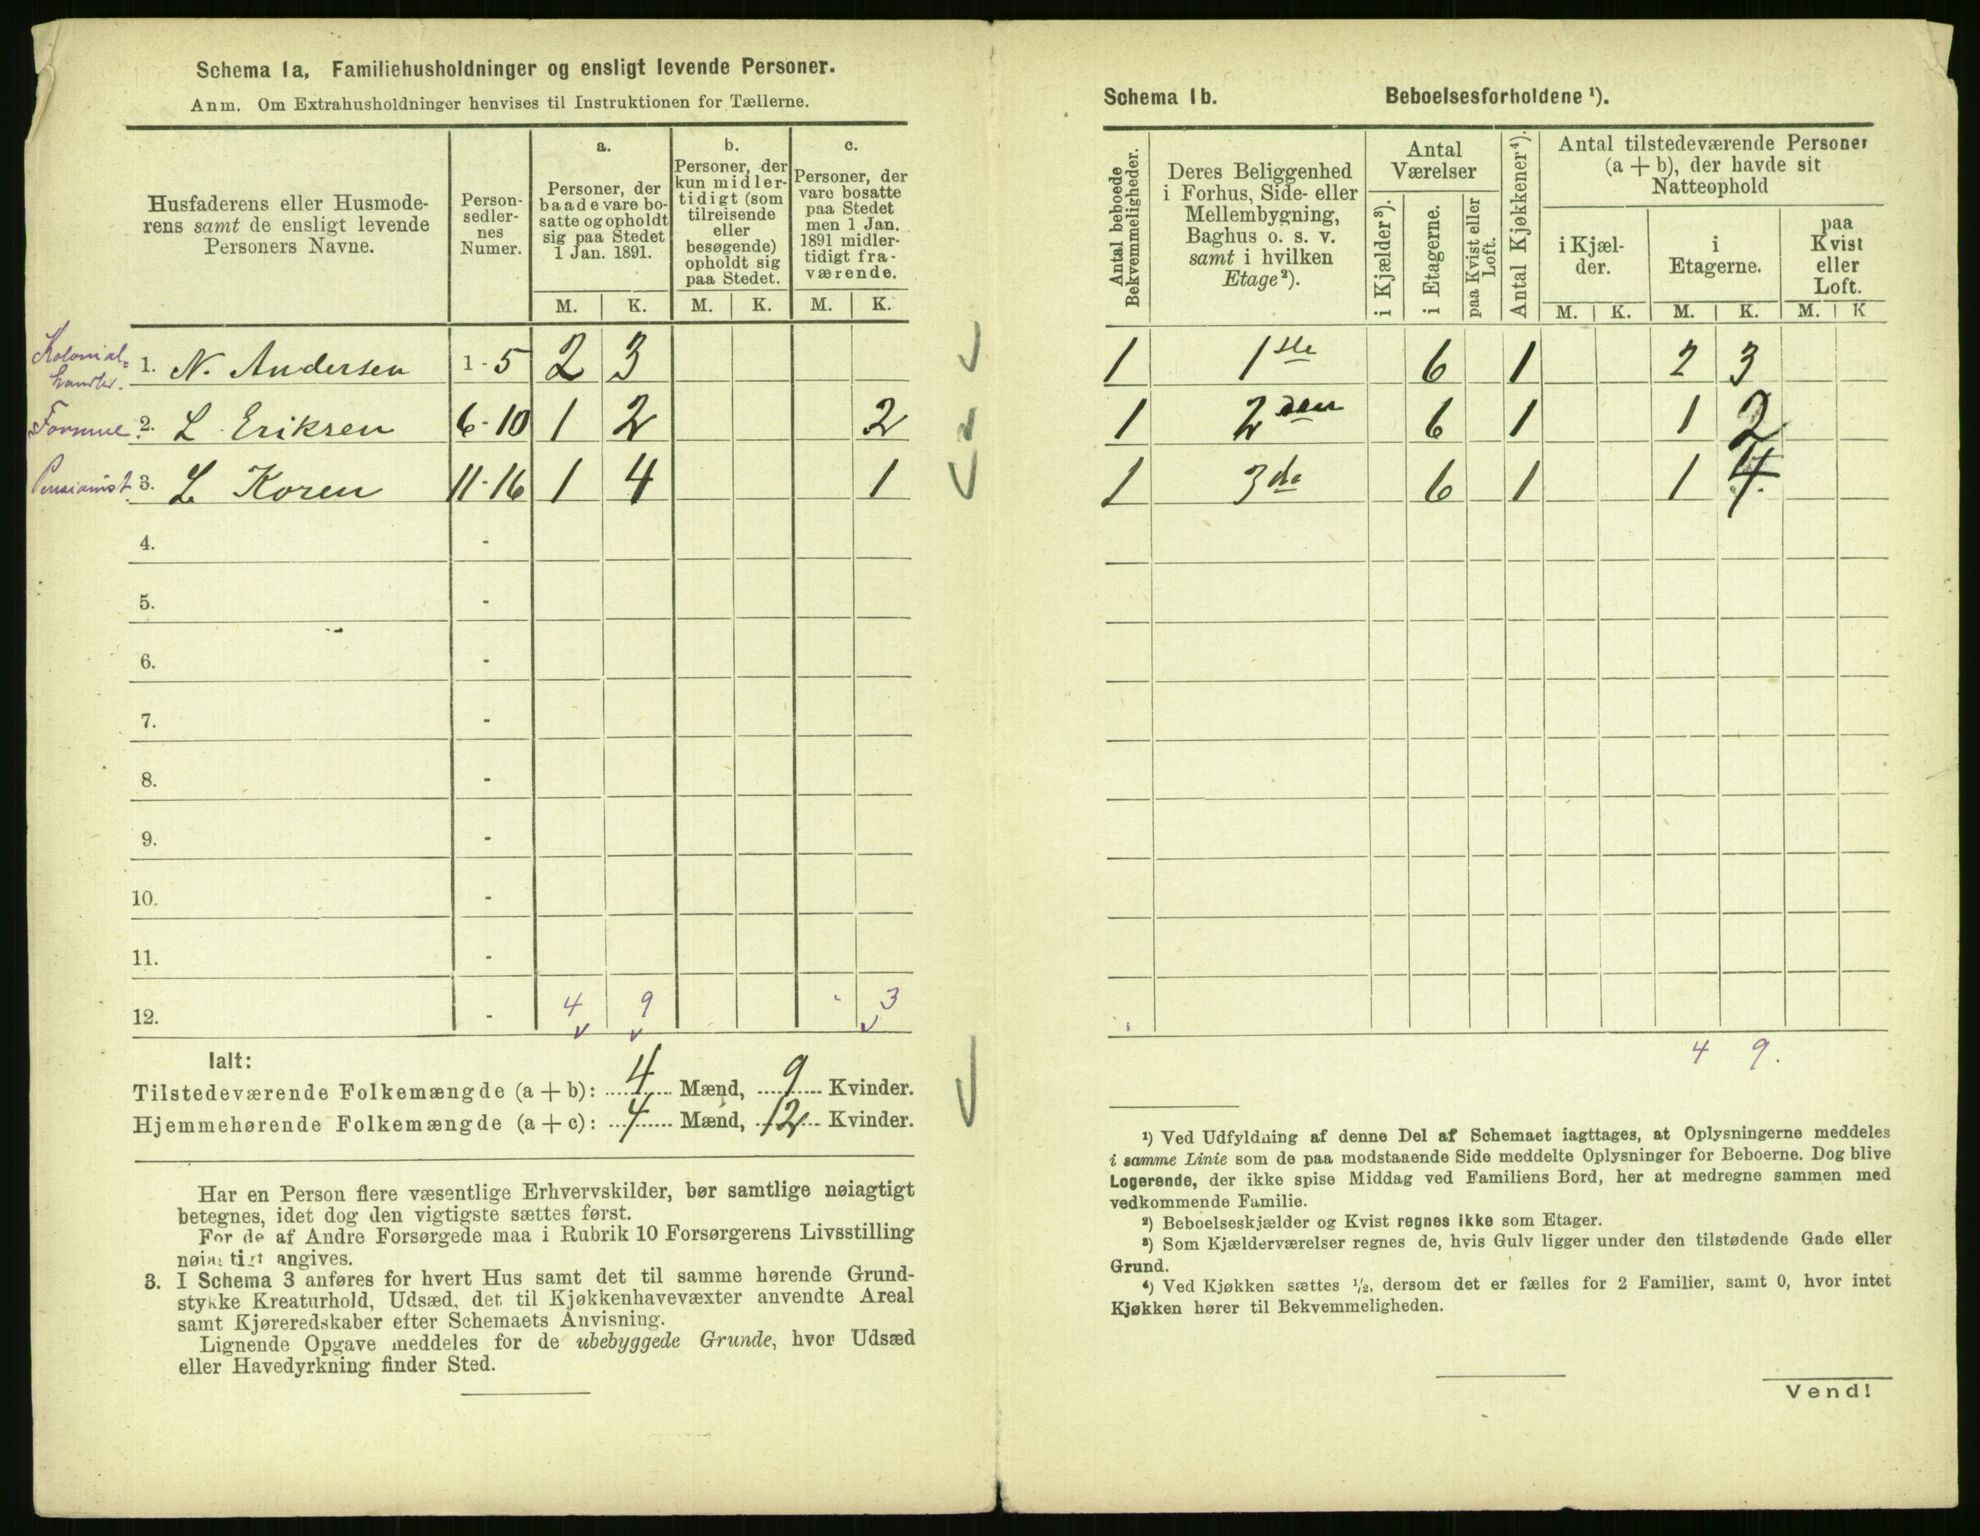 Schema 1a, Familiehusholdninger og ensligt levende Personer.
Anm. Om Extrahusholdninger henvises til Instruktionen for Tællerne.
Husfaderens eller Husmoderens samt de ensligt levende Personers Navne.
Person-sedler-nes Numer.
a.
Personer, der
baade vare bo-
satte og opholdt
sig paa Stedet
1 Jan. 1891.
b.
Personer, der
kun midler-
tidigt (som
tilreisende
eller
besøgende)
opholdt sig
paa Stedet.
c.
Personer, der
vare bosatte
paa Stedet
men 1 Jan.
1891 midler-
tidigt fra-
værende.
M. K. M. K. M. K.
Kolonial=
handler.
1. N. Andersen 1-5 2 3
Formue. 2. L. Eriksen 6-10 1 2 2
Pensionist. 3. L. Koren 11-16 1 4 1
4. -
5. -
6. -
7. -
8. -
9. -
10. -
11. -
12. - 4 9 3
Ialt:
Tilstedeværende Folkemængde (a + b): 4 Mænd, 9 Kvinder.
Hjemmehørende Folkemængde (a + c): 4 Mænd, 12 Kvinder.
Har en Person flere væsentlige Erhvervskilder, bør samtlige nøiagtigt
betegnes, idet dog den vigtigste sættes først.
For de af Andre Forsørgede maa i Rubrik 10 Forsørgerens Livsstilling
nøiagtigt angives.
3. I Schema 3 anføres for hvert Hus samt det til samme hørende Grund-
stykke Kreaturhold, Udsæd, det til Kjøkkenhavevæxter anvendte Areal
samt Kjøreredskaber efter Schemaets Anvisning.
Lignende Opgave meddeles for de ubebyggede Grunde, hvor Udsæd
eller Havedyrkning finder Sted.
Schema 1b. Beboelsesforholdene ¹).
Antal beboede
Bekvemmeligheder.
Deres Beliggenhed
i Forhus, Side- eller
Mellembygning,
Baghus o. s. v.
samt i hvilken
Etage²).
Antal
Værelser
i Kjælder³).
i Etagerne.
paa Kvist eller
Loft.
Antal Kjøkkener⁴).
Antal tilstedeværende Personer
(a + b), der havde sit
Natteophold
i Kjæl-
der.
i
Etagerne.
paa
Kvist
eller
Loft.
M. K. M. K. M. K
1 1ste 6 1 2 3
1 2den 6 1 1 2
1 3de 6 1 1 4
4 9.
¹) Ved Udfyldning af denne Del af Schemaet iagttages, at Oplysningerne meddeles
i samme Linie som de paa modstaaende Side meddelte Oplysninger for Beboerne. Dog blive
Logerende, der ikke spise Middag ved Familiens Bord, her at medregne sammen med
vedkommende Familie.
²) Beboelseskjælder og Kvist regnes ikke som Etager.
³) Som Kjælderværelser regnes de, hvis Gulv ligger under den tilstødende Gade eller
Grund.
⁴) Ved Kjøkken sættes ½, dersom det er fælles for 2 Familier, samt 0, hvor intet
Kjøkken hører til Bekvemmeligheden.
Vend!